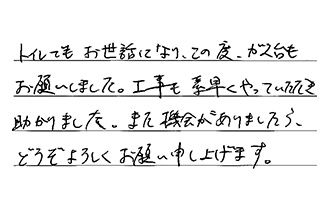 トイレでもお世話になり、この度、ガス台も
お願いしました。工事も素早くやっていただき
助かりました。また機会がありましたら、
どうぞよろしくお願い申し上げます。